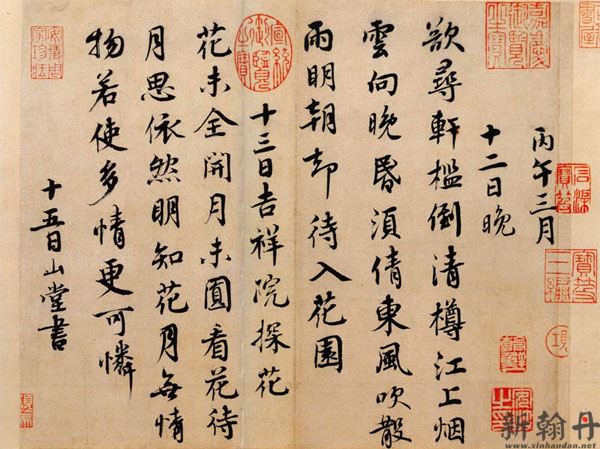 嘉慶御覽之寶
丙午三月
十二日晚
欲尋軒檻倒清樽江上烟
雲向晚昏須倩東風吹散
雨明朝却待入花園
宣統御覽之寶
十三日吉祥院探花
花未全開月未圓看花待
月思依然明知花月無情
物若使多情更可憐
十五日山堂書
安儀周家珍藏
新翰丹
www.xinhandan.net